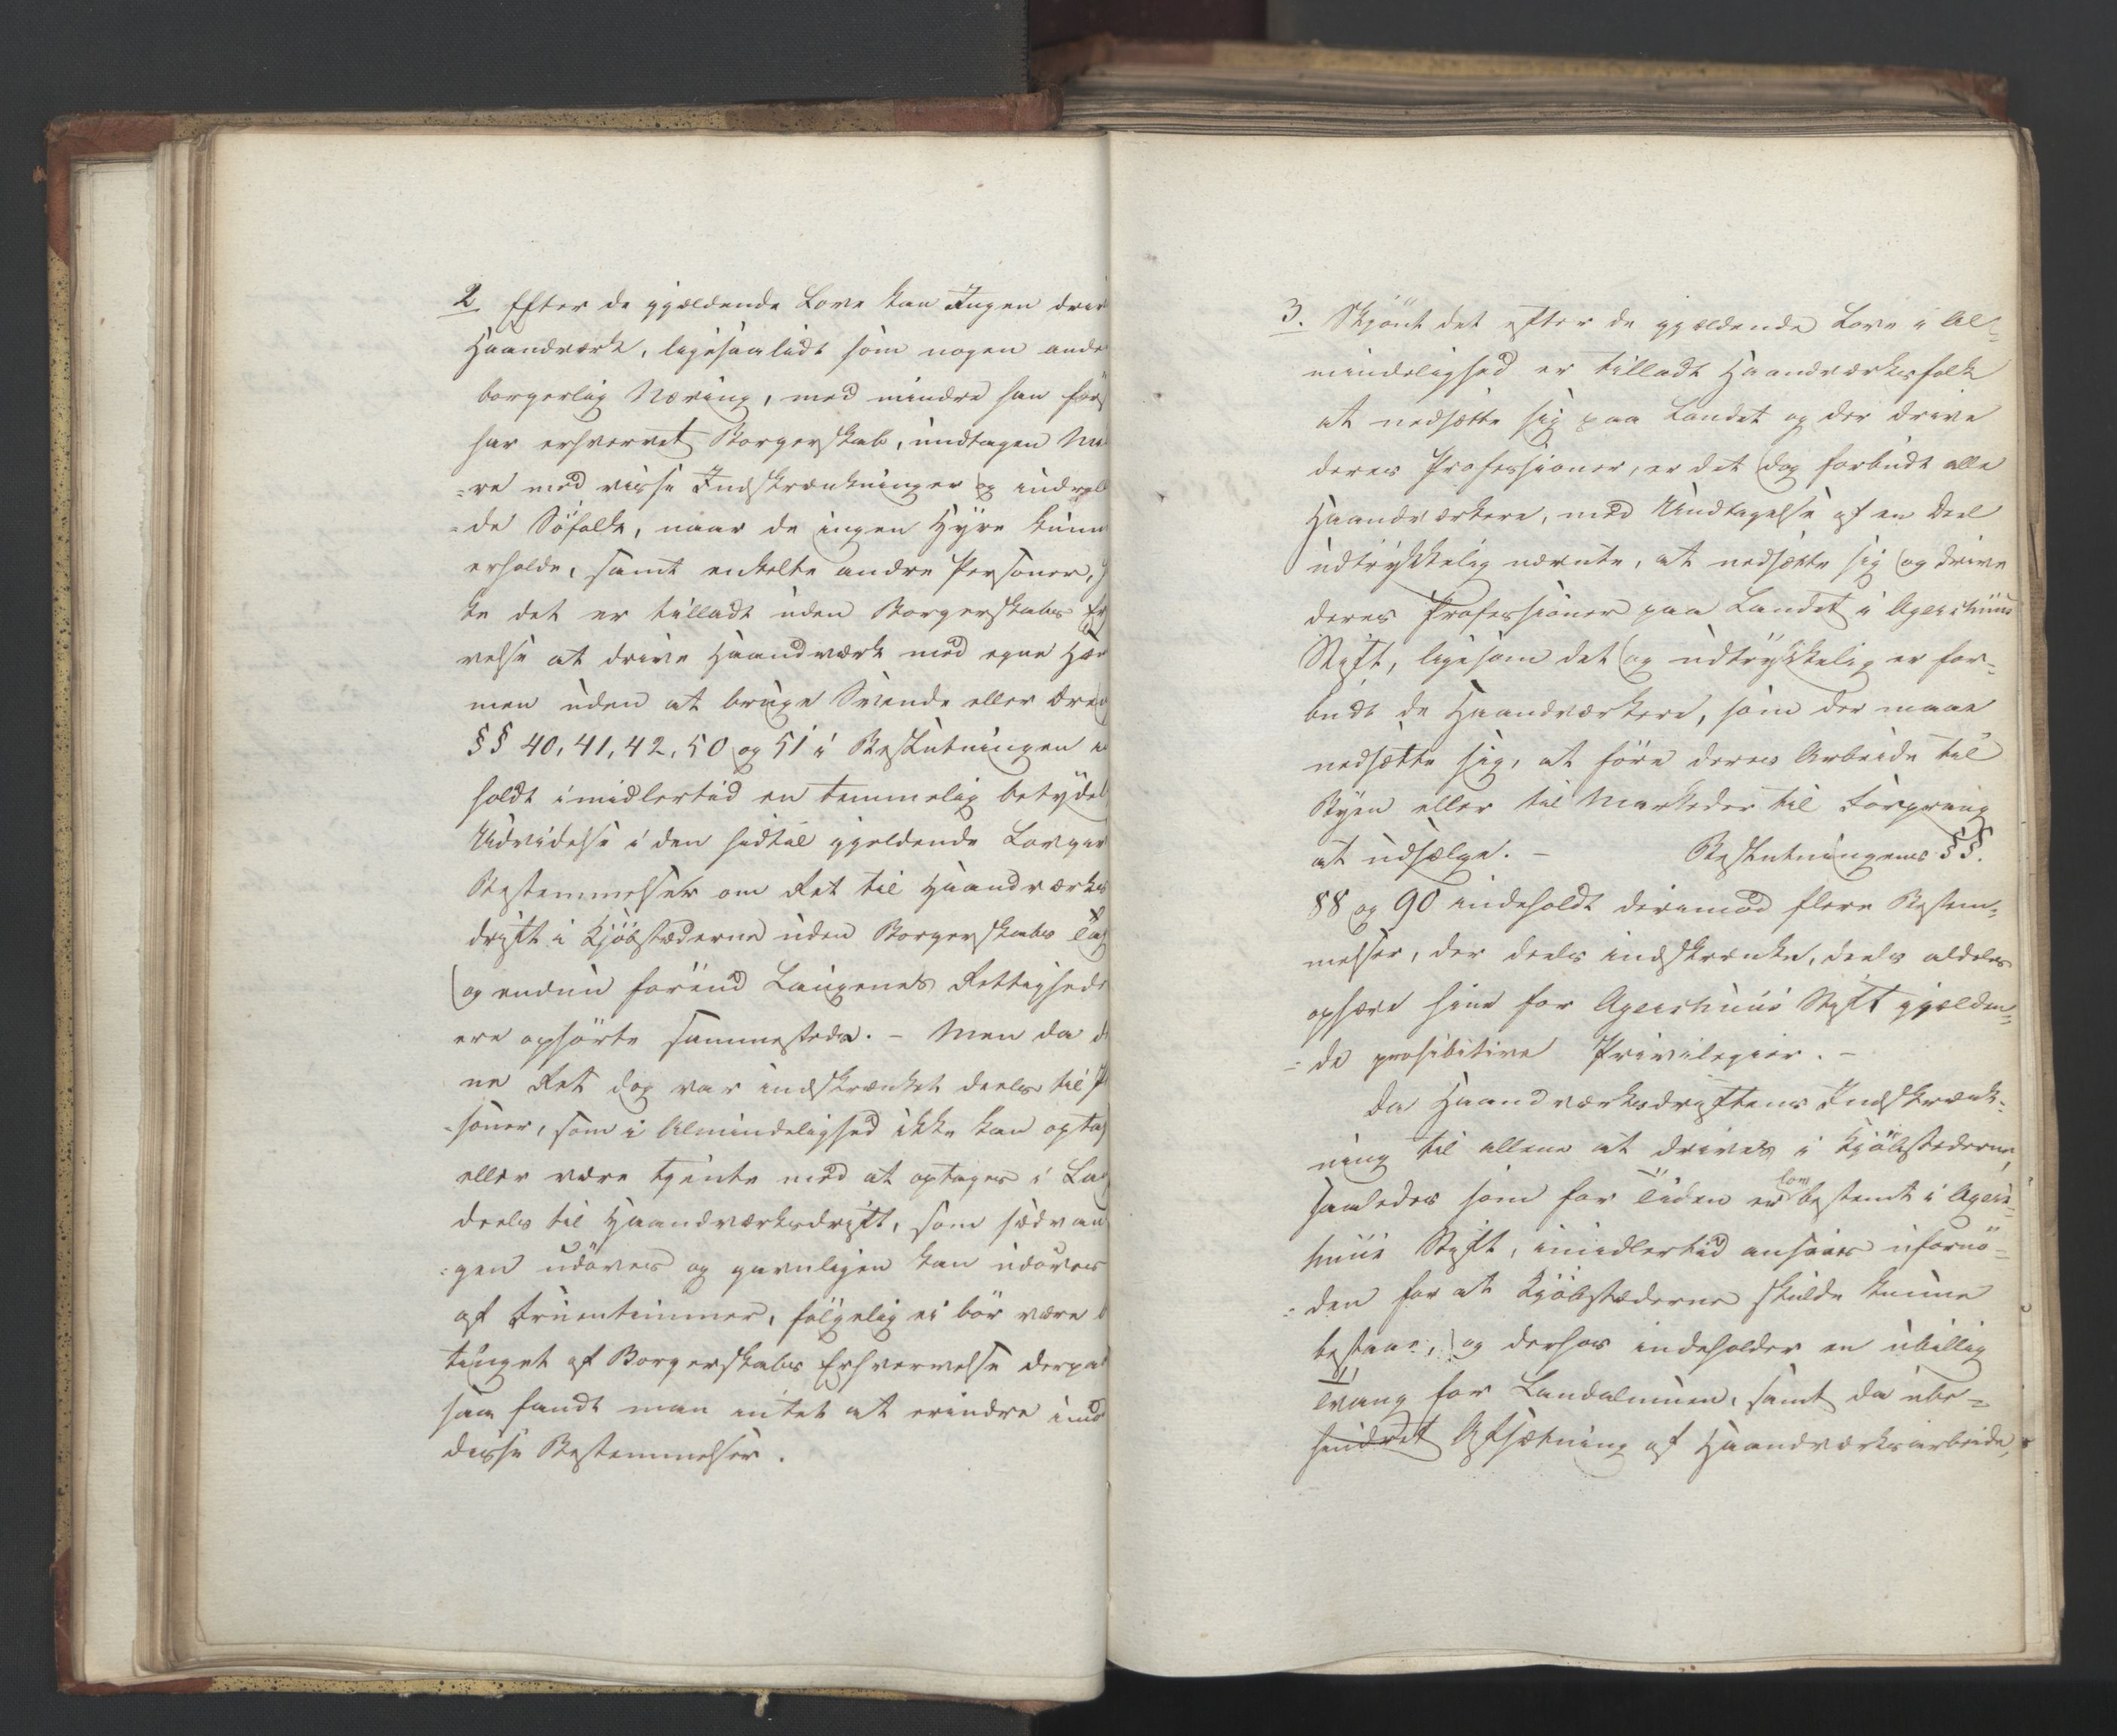 2. Efter de gjældende Love kan Ingen driv
Haandværk, ligesaalidt som nogen ande
borgerlig Næring, med mindre han førs
har erhvervet Borgerskab, undtagen Mu
=re med visse Indskrænkninger og indrul
=de Söfolk, naar de ingen Hyre kunn
erholde, samt enkelte andre Personer,
ke det er tilladt uden Borgerskabs Er
velse at drive Haandværk med egne Hæn
men uden at bruge Svende eller Dren
§§ 40, 41, 42, 50 og 51 i Beslutningen in
holdt imidlertid en temmelig betydel
Udvidelse i den hidtil gjeldende Lovgiv
Bestemmelser om Ret til Haandværks
drift i Kjöbstæderne uden Borgerskabs Tag
og endnu förend Laugenes Rettighede
ere ophörte sammesteds. – Men da de
ne Ret dog var indskrænket deels til P
=soner, som i Almindelighed ikke kan optag
eller være tjente med at optages i Lau
deels til Haandværksdrift, som sædvan
=gen udöves og gavnligen kan udöves
af Fruentimmer, fölgelig ei bör være b
tinget af Borgerskabs Erhvervelse derpaa
saa fandt man intet at erindre imod
disse Bestemmelser.
3. Skjönt det efter de gjældende Love i Al=
mindelighed er tilladt Haandværksfolk
at nedsætte sig paa Landet og der drive
deres Professioner, er det dog forbudt alle
Haandværkere, med Undtagelse af en Deel
udtrykkelig nævnte, at nedsætte sig og drive
deres Professioner paa Landet i Agershuus
Stift, ligesom det og udtrykkelig er for=
budt de Haandværkere, som der maae
nedsætte sig, at före deres Arbeide til
Byen eller til Markeder til Torvs
at udsælge. – Beslutningens §§.
88 og 90 indeholdt derimod flere Bestem=
melser, der deels indskrænke, deels aldeles
ophæve hine for Agershuus Stift gjælden=
=de prohibitive Privilegier. –
Da Haandværksdriftens Indskrænk=
ning til allene at drives i Kjöbstederne,
saaledes som for Tiden er som bestemt i Agers=
huus Stift, imidlertid ansees ufornö=
=den for at Kjöbstæderne skulde kunne
bestaae, og derhos indeholder en ubillig
Tvang for Landalmuen, samt da ube=
hindret Afsætning af Haandværksarbeide,